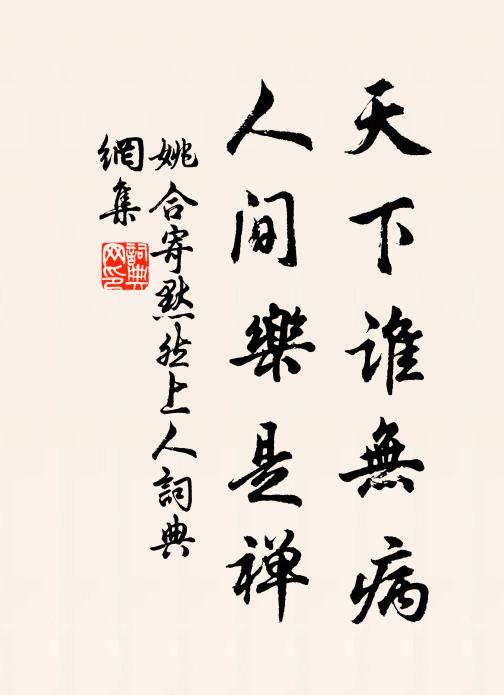 天下誰無病
人間樂是禅
姚合寄默然上人詞典
網集
詞典网印